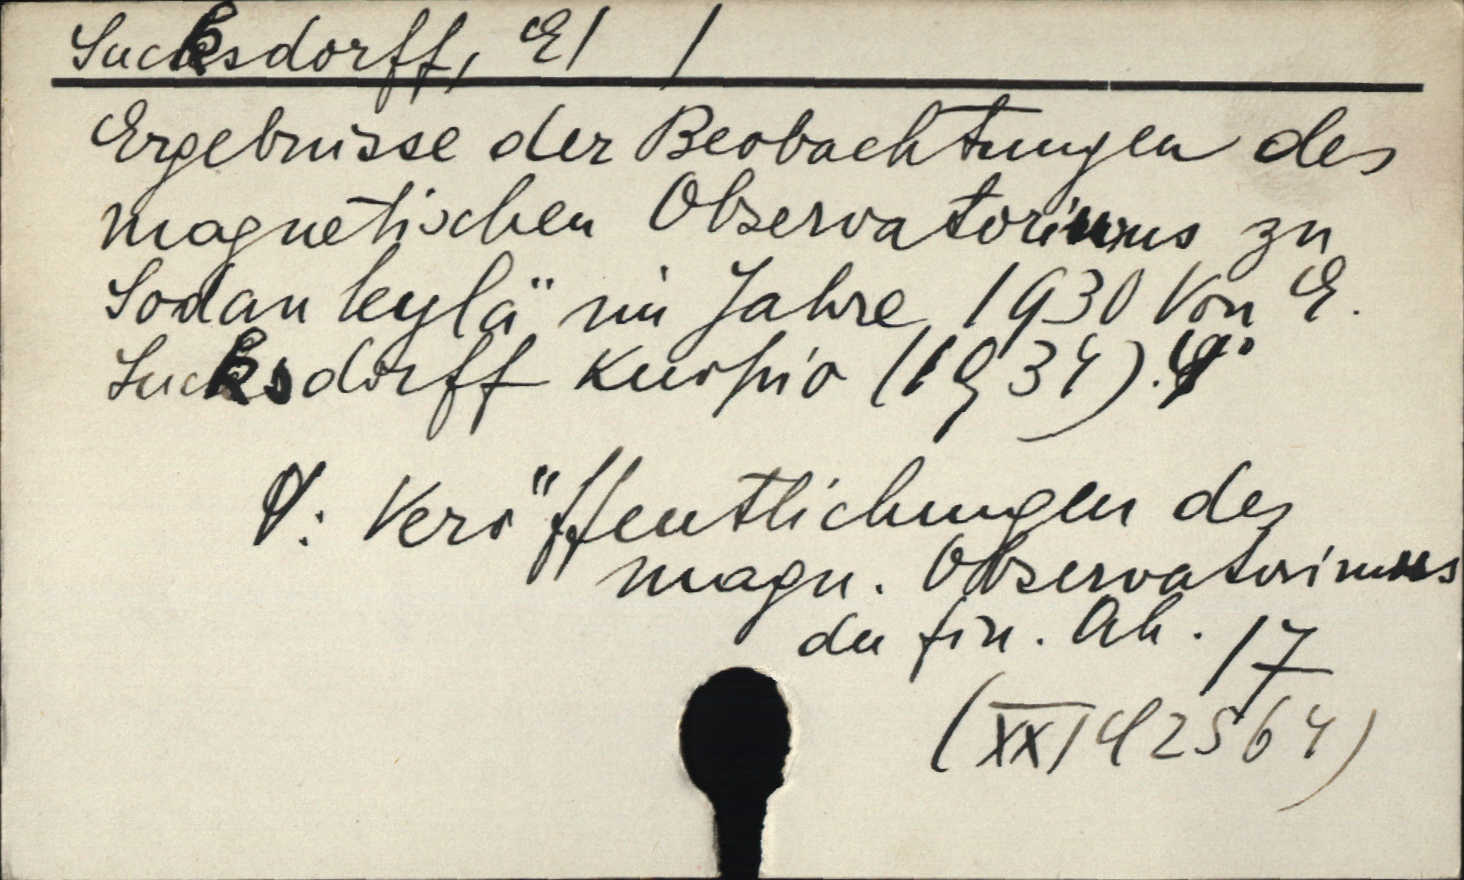 Sucksdorff, E/ /
Ergebnisse der Beobachtungen des
magnetischen Observatoriums zu
Sodankylä im Jahre 1930 Von E.
Sucksdorff Kuopio (1934). 4°
V: Veröffentlichungen des
magn. Observatoriums
der fin. Ak. 17
(XXI 42564)